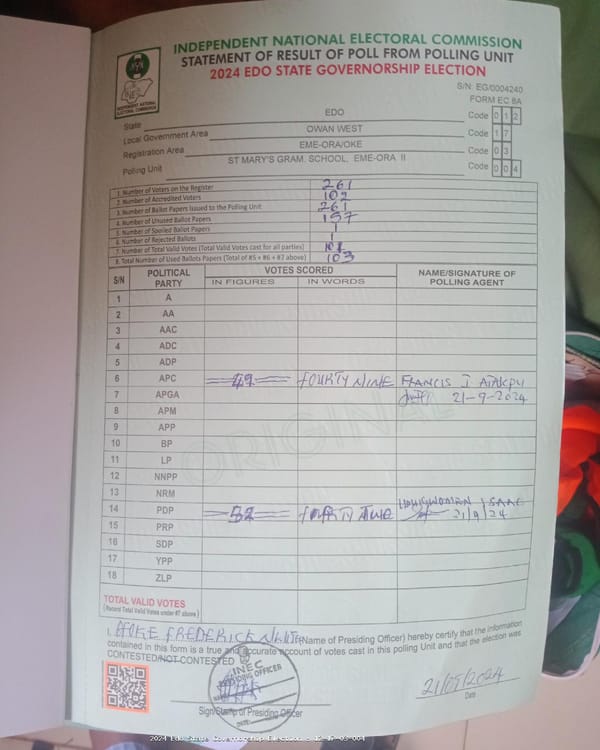 INDEPENDENT NATIONAL ELECTORAL COMMISSION
STATEMENT OF RESULT OF POLL FROM POLLING UNIT
2024 EDO STATE GOVERNORSHIP ELECTION
INDEPENDENT NATIONAL ELECTORAL COMMISSION
S/N: EG/0004240
FORM EC 8A
State EDO Code 0 1 2
Local Government Area OWAN WEST Code 1 7
Registration Area EME-ORA/OKE Code 0 3
Polling Unit ST MARY'S GRAM. SCHOOL, EME-ORA II Code 0 0 4
1. Number of Voters on the Register 261
2. Number of Accredited Voters 102
3. Number of Ballot Papers Issued to the Polling Unit 261
4. Number of Unused Ballot Papers 157
5. Number of Spoiled Ballot Papers 1
6. Number of Rejected Ballots 1
7. Number of Total Valid Votes (Total Valid Votes cast for all parties)
8. Total Number of Used Ballots Papers (Total of #5 + #6 + #7 above) 103
S/N POLITICAL PARTY VOTES SCORED NAME/SIGNATURE OF POLLING AGENT
IN FIGURES IN WORDS
1 A
2 AA
3 AAC
4 ADC
5 ADP
6 APC 49 FOURTY NINE FRANCIS I
7 APGA 21-9-2024
8 APM
9 APP
10 BP
11 LP
12 NNPP
13 NRM
14 PDP 52 ISAAC
15 PRP 21/9/24
16 SDP
17 YPP
18 ZLP
ORIGINAL
TOTAL VALID VOTES
(Record Total Valid Votes under #7 above)
I, FREDERICK (Name of Presiding Officer) hereby certify that the information
contained in this form is a true and accurate account of votes cast in this polling Unit and that the election was
CONTESTED/NOT CONTESTED
INEC
PRESIDING OFFICER
DATE:
21/09/2024
Date
Sign/Stamp of Presiding Officer
2024 Edo State Governorship Election - 12-17-03-004